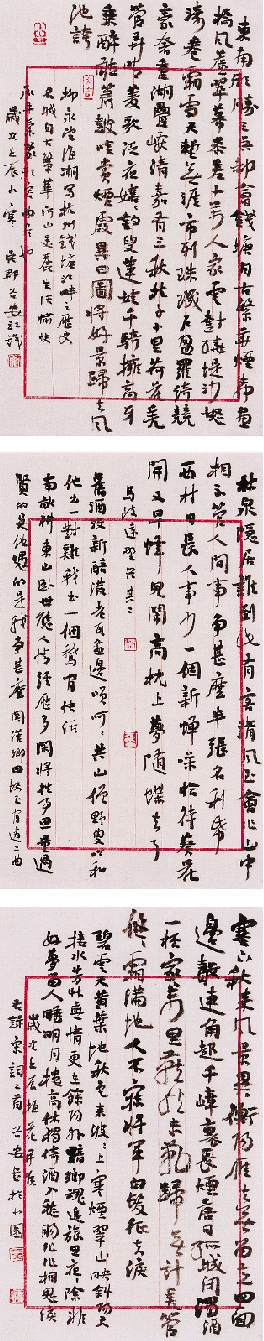 東南形勝三吳都會錢塘自古繁華煙柳畫
橋風簾翠幕參差十萬人家雲樹繞堤沙怒
濤卷霜雪天塹無涯市列珠璣戶盈羅綺競
豪奢重湖疊巘清嘉有三秋桂子十里荷花羌
管弄晴菱歌泛夜嬉嬉釣叟蓮娃千騎擁高牙
乘醉聽簫鼓吟賞煙霞異日圖將好景歸去鳳
池誇
柳永望海潮寫杭州錢塘
名城自古繁華河山美麗生活愉快
歲次壬辰
林泉隱居誰到此有客清風至會作山中
相不管人間事爭甚麼半張名利紙
西村日長人事少一個新蟬噪恰待葵花
開又早蜂兒鬧高枕上夢隨蝶去了
馬致遠
舊酒投新醅潑老瓦盆邊笑呵呵共山僧野叟吟和
他出一對雞我出一個鵝閒快活
南畝耕東山臥世態人情經歷多閒將往事思量過
賢的是他愚的是我爭甚麼關漢卿四塊玉閒適二曲
塞下秋來風景異衡陽雁去無留意四面
邊聲連角起千嶂裏長煙落日孤城閉濁酒
一杯家萬里燕然未勒歸無計羌管
悠悠霜滿地人不寐將軍白髮征夫淚
碧雲天黃葉地秋色連波波上寒煙翠山映斜陽天
接水芳草無情更在斜陽外黯鄉魂追旅思夜夜除非
好夢留人睡明月樓高休獨倚酒入愁腸化作相思淚
歲次壬辰桂花開後
又錄宋詞二首於小園